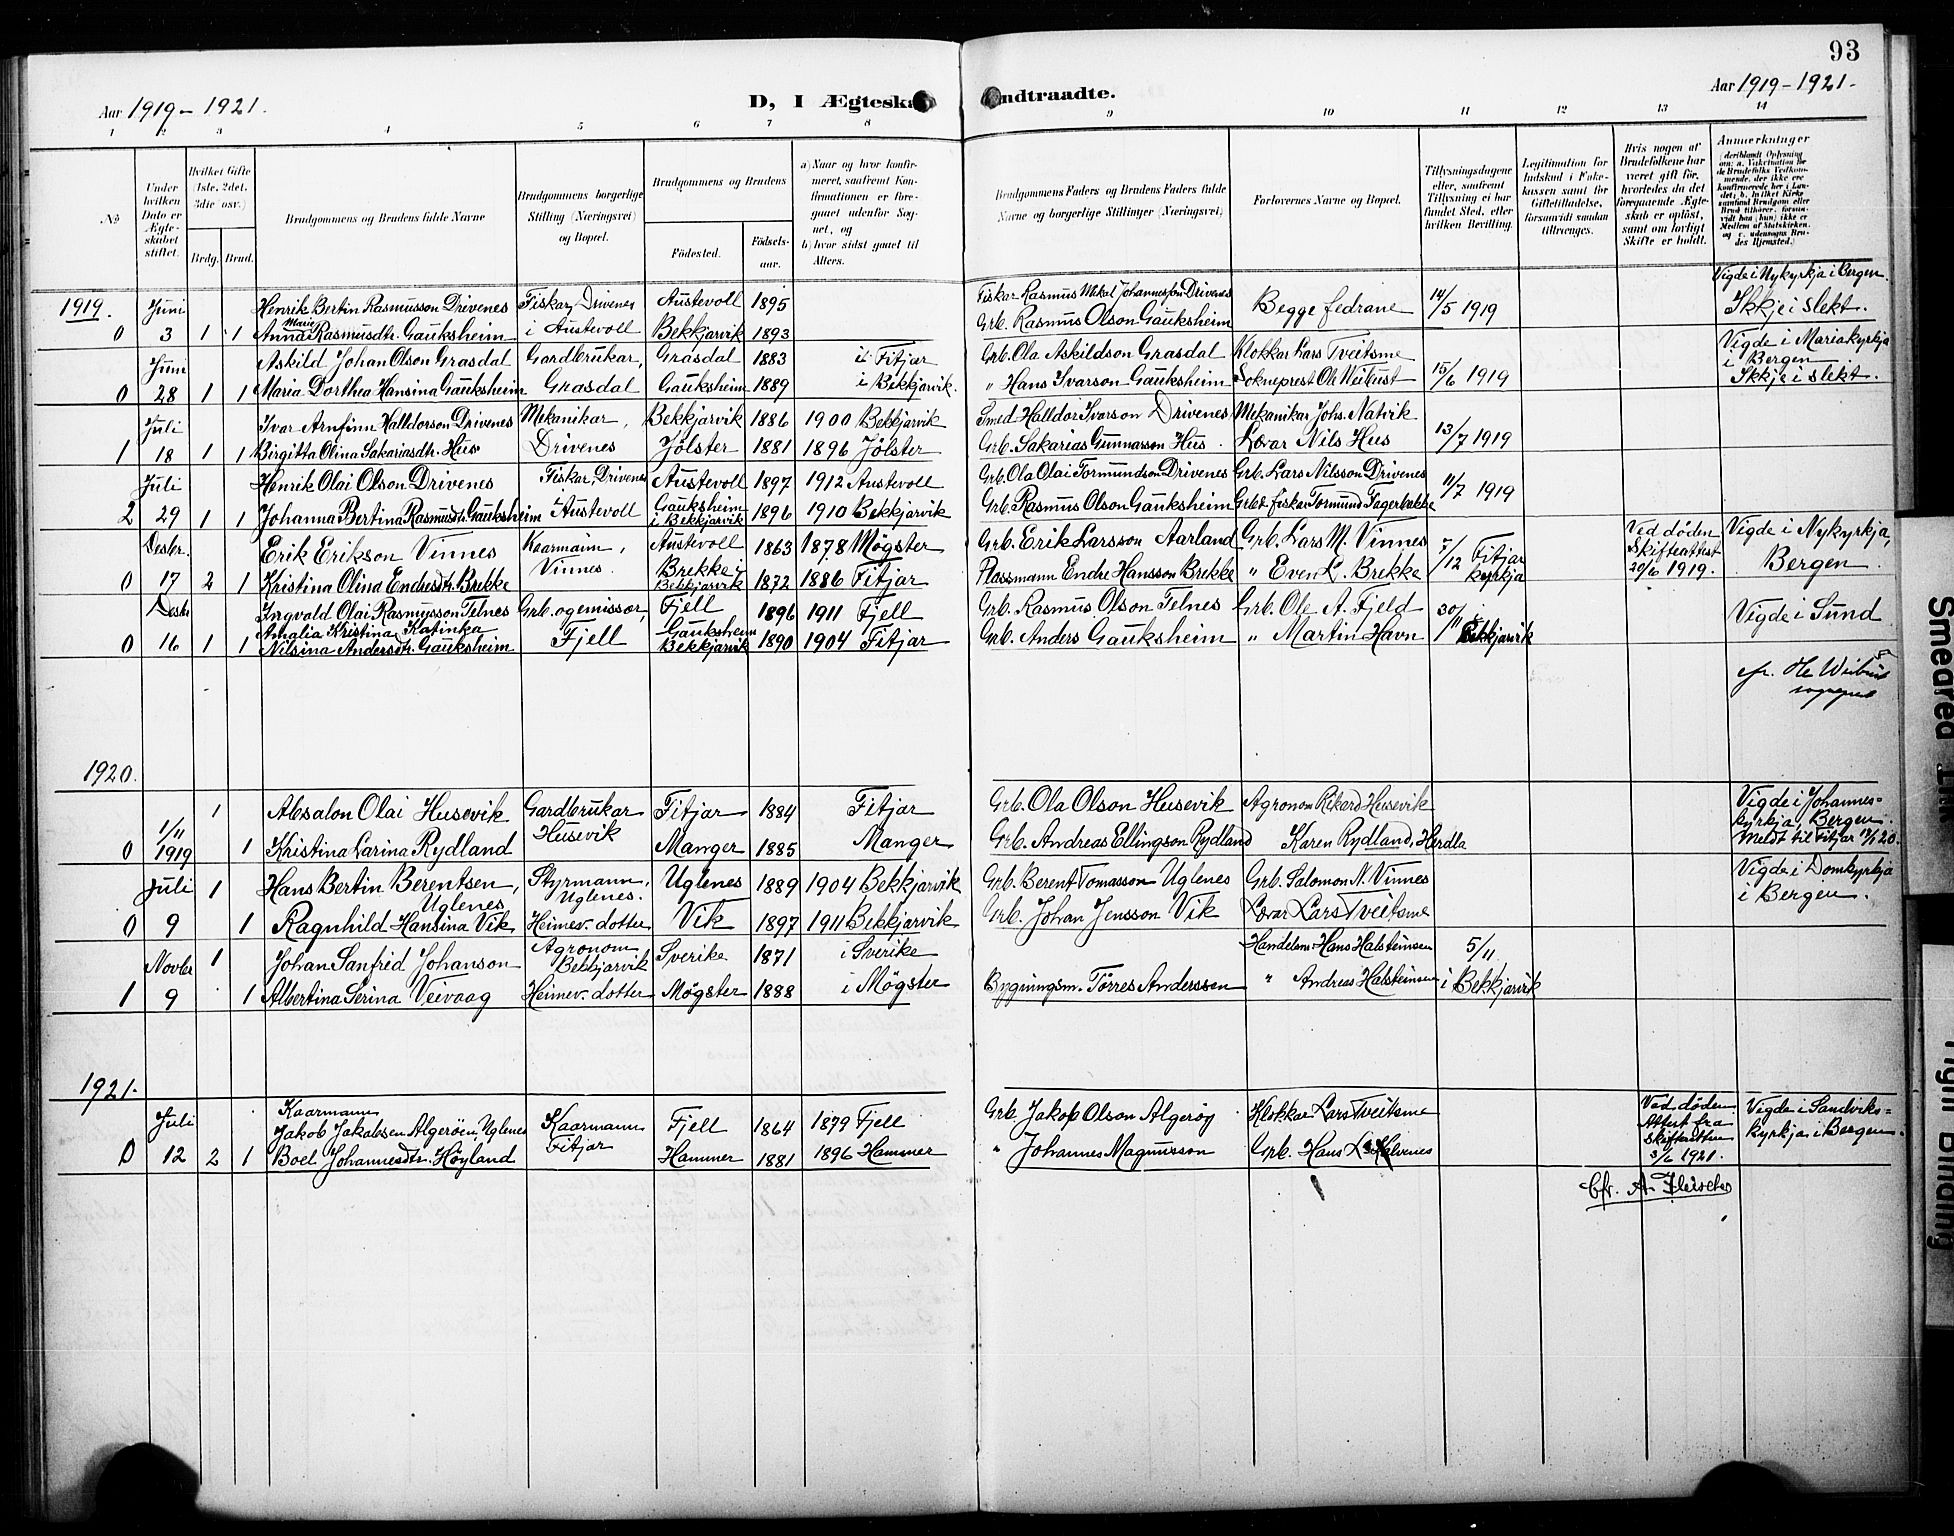 93
Aar 1919 - 1921.
D, I Ægteska
ndtraadte.
Aar 1919 - 1921.
1 2 3 4 5 6 7 8 9 10 11 12 13 14
No
Under hvilken Dato er Ægteskabet stiftet.
Hvilket Gifte (1ste, 2det, 3die osv.)
Brdg. Brud.
Brudgommens og Brudens fulde Navne
Brudgommens borgerlige Stilling (Næringsvei) og Bopæl.
Brudgommens og Brudens
Fødested.
Fødsels-aar.
a) Naar og hvor konfirmeret, saafremt Konfirmationen er foregaaet udenfor Sognet, og
b) hvor sidst gaaet til Alters.
Brudgommens Faders og Brudens Faders fulde Navne og borgerlige Stillinger (Næringsvei)
Forlovernes Navne og Bopæl.
Tillysningsdagene eller, saafremt Tillysning ei har fundet Sted, efter hvilken Bevilling.
Legitimation for Indskud i Enkekassen samt for Giftetilladelse, forsaavidt saadan tiltrænges.
Hvis nogen af Brudefolkene har været gift før, hvorledes da det foregaaende Ægteskab er opløst, samt om lovligt Skifte er holdt.
Anmerkninger
Vigde i Nykyrkja i Bergen
1919. Juni Henrik Bertin Rasmusson Drivenes Fiskar, Drivenes Austevoll 1895 Fiskar Rasmus Mekal Johannesson Drivenes Begge fedrane 14/5 1919 Ikkje i slekt.
0 3 1 1 Anna Marie Rasmusdtr. Gauksheim i Austevoll Bekkjarvik 1893 Grb. Rasmus Olson Gauksheim
Juni Askild Johan Olson Grasdal Gardbrukar, Grasdal 1883 i Fitjar Grb. Ola Askildson Grasdal Klokkar Lars Tveitsme 15/6 1919 Vigde i Mariakyrkja i Bergen
0 28 1 1 Maria Dorthea Hansina Gauksheim Grasdal Gauksheim 1889 i Bekkjarvik. " Hans Ivarson Gauksheim Sokneprest Ol. Weibust Ikkje i slekt.
Juli Ivar Arnfinn Halldorson Drivenes Mekanikar, Bekkjarvik 1886 1900 Bekkjarvik Smed Halldor Ivarson Drivenes Mekanikar Johs. Natvik 13/7 1919
1 18 1 1 Birgitta Olina Sakariasdtr. Hus Drivenes Jölster 1881 1896 Jölster Grb. Sakarias Gunnarson Hus. Lærar Nils Hus
Juli Henrik Olai Olson Drivenes Fiskar, Drivenes Austevoll 1897 1912 Austevoll Grb. Ola Olai Tormundson Drivenes Grb. Lars Nilsson Drivenes 11/7 1919
2 29 1 1 Johanna Bertina Rasmusdtr. Gauksheim Austevoll Gauksheim i Bekkjarvik 1896 1910 Bekkjarvik Grb. Rasmus Olson Gauksheim Grb & fiskar Tormund Fagerbakke
Desbr. Erik Erikson Vinnes Kaarmann, Austevoll 1863 1878 Møgster Grb. Erik Larsson Aarland Grb. Lars M. Vinnes 7/12 Fitjar kyrkja Ved døden Skifteattest 20/6 1919. Vigde i Nykyrkja,
0 17 2 1 Kristina Olina Endresdtr. Brekke Vinnes. Brekke i Bekkjarvik 1872 1886 Fitjar Plassmann Endre Hansson Brekke " Even L. Brekke Bergen.
Desbr Ingvald Olai Rasmusson Telnes Grb. og emissær, Fjell 1896 1911 Fjell Grb. Rasmus Olson Telnes Grb. Ole A. Fjeld 30/11 i Bekkjarvik Vigde i Sund
0 16 1 1 Amalia Kristina Katinka Nilsina Andersdtr. Gauksheim Fjell Gauksheim Bekkjarvik 1890 1904 Fitjar Grb. Anders Gauksheim " Martin Havn
1920.
1 Absalon Olai Husevik Gardbrukar Fitjar 1884 Fitjar Grb. Ola Olson Husevik Agronom Rikard Husevik Vigde i Johannes=kyrkja, Bergen.
0 1/11 1919 1 Kristina Larina Rydland Husevik Manger 1885 Manger Grb. Andreas Ellingson Rydland Karen Rydland, Herdla Meldt til Fitjar
Juli 1 Hans Bertin Berentsen, Uglenes Styrmann, Uglenes. Uglenes 1889 1904 Bekkjarvik Grb. Berent Tomasson Uglenes Grb. Salomon N. Vinnes Vigde i Domkyrkja
0 9 1 Ragnhild Hansina Vik Heimev. dotter Vik 1897 1911 Bekkjarvik Grb. Johan Jensson Vik Lærar Lars Tveitsme i Bergen.
Novbr 1 Johan Sanfrid Johanson Agronom Bekkjarvik Sverike 1871 i Sverike Handelsm. Hans Halsteinsen 5/11
1 9 1 Albertina Serina Veivaag Heimev. dotter Møgster 1888 i Møgster Bygningsm. Tørres Anderssen " Andreas Halsteinsen i Bekkjarvik
1921.
Juli Kaarmann Jakob Jakobsen Algerøen, Uglenes Kaarmann Fjell 1864 1879 Fjell Grb Jakob Olson Algerøy Klokkar Lars Tveitsme Ved døden Attest fra skifteretten 3/6 1921. Vigde i Sandviks=
0 12 2 1 Boel Johannesdtr. Høyland Fitjar Hammer 1881 1896 Hammer " Johannes Magnusson Grb. Hans kyrkja i Bergen.
Cfr. A.
Smeared Ink
Tight Binding